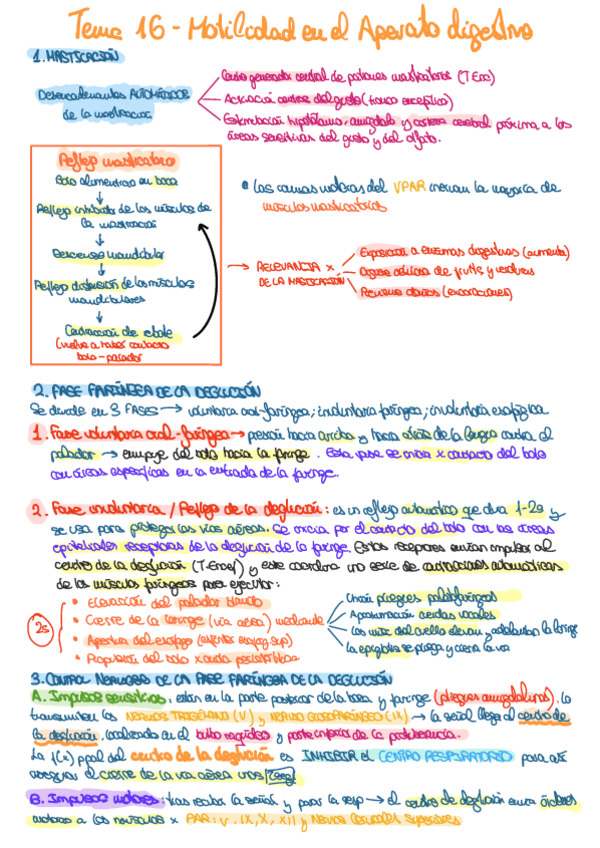 Tema 16 - Motilidad en el Aparato digestivo
1. MASTICACIÓN
Desencadenantes AUTOMÁTICOS
de la masticación
Centro generador central de patrones masticatorios (T. Enc)
Activación centros del gusto (tronco encefálico)
Estimulación hipotálamo, amígdala y corteza cerebral próxima a las
áreas sensitivas del gusto y del olfato.
Reflejo masticatorio
Bolo alimenticio en boca
↓
Reflejo inhibitorio de los músculos de
la masticación
↓
Descenso mandibular
↓
Reflejo distensión de los músculos
mandibulares
↓
Contracción de rebote
(vuelve a haber contacto
bolo-paladar)
• Las ramas motoras del V PAR inervan la mayoría de
músculos masticatorios
→ RELEVANCIA x
DE LA MASTICACIÓN
Exposición a enzimas digestivas (aumenta)
Digerir celulosa de fruta y verduras
Previene daños (excoriaciones)
2. FASE FARÍNGEA DE LA DEGLUCIÓN
Se divide en 3 FASES → voluntaria oral-faríngea; involuntaria faríngea; involuntaria esofágica
1. Fase voluntaria oral-faríngea → presión hacia arriba y hacia atrás de la lengua contra el
paladar → empuje del bolo hacia la faringe. Esta fase se inicia x contacto del bolo
con áreas específicas en la entrada de la faringe.
2. Fase involuntaria / Reflejo de la deglución: es un reflejo automático que dura 1-2s y
se usa para proteger las vías aéreas. Se inicia por el contacto del bolo con las áreas
epiteliales receptoras de la deglución de la faringe. Estos receptores envían impulsos al
centro de la deglución (T. Encef) y este coordina una serie de contracciones automáticas
de los músculos faríngeos para ejecutar:
2s
• Elevación del paladar blando
• Cierre de la laringe (vía aérea) mediante
• Apertura del esófago (esfínter esofág sup)
• Propulsión del bolo x onda peristáltica
Unión pliegues palatofaríngeos
Aproximación cuerdas vocales
Los músc del cuello elevan y adelantan la laringe
La epiglotis se pliega y cierra la vía
3. CONTROL NERVIOSO DE LA FASE FARÍNGEA DE LA DEGLUCIÓN
A. Impulsos sensitivos: están en la parte posterior de la boca y faringe (pliegues amigdalinos). Lo
transmiten los NERVIOS TRIGÉMINO (V) y NERVIO GLOSOFARÍNGEO (IX) → la señal llega al centro de
la deglución, localizado en el bulbo raquídeo y parte inferior de la protuberancia.
La f(x) ppal del centro de la deglución es INHIBIR el CENTRO RESPIRATORIO para así
asegurar el cierre de la vía aérea unos
B. Impulsos motores: tras recibir la señal y parar la resp → el centro de deglución envía órdenes
motoras a los músculos x PAR: V, IX, X, XII y Nervios Cervicales Superiores